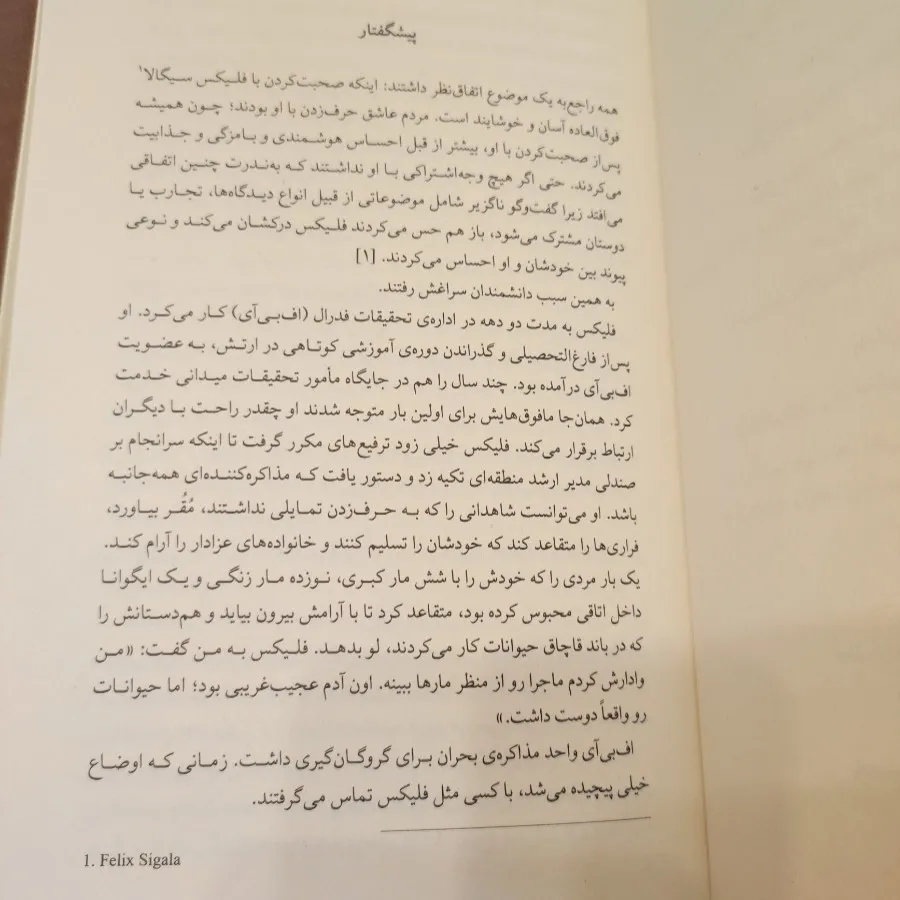 پیشگفتار
همه راجع‌به یک موضوع اتفاق‌نظر داشتند: اینکه صحبت‌کردن با فلیکس سیگالا۱
فوق‌العاده آسان و خوشایند است. مردم عاشق حرف‌زدن با او بودند؛ چون همیشه
پس‌از صحبت‌کردن با او، بیشتر از قبل احساس هوشمندی و بامزگی و جذابیت
می‌کردند. حتی اگر هیچ وجه‌اشتراکی با او نداشتند که به‌ندرت چنین اتفاقی
می‌افتد زیرا گفت‌وگو ناگزیر شامل موضوعاتی از قبیل انواع دیدگاه‌ها، تجارب یا
دوستان مشترک می‌شود، باز هم حس می‌کردند فلیکس درکشان می‌کند و نوعی
پیوند بین خودشان و او احساس می‌کردند. [۱]
به همین سبب دانشمندان سراغش رفتند.
فلیکس به مدت دو دهه در اداره‌ی تحقیقات فدرال (اف‌بی‌آی) کار می‌کرد. او
پس‌از فارغ‌التحصیلی و گذراندن دوره‌ی آموزشی کوتاهی در ارتش، به عضویت
اف‌بی‌آی درآمده بود. چند سال را هم در جایگاه مأمور تحقیقات میدانی خدمت
کرد. همان‌جا مافوق‌هایش برای اولین بار متوجه شدند او چقدر راحت با دیگران
ارتباط برقرار می‌کند. فلیکس خیلی زود ترفیع‌های مکرر گرفت تا اینکه سرانجام بر
صندلی مدیر ارشد منطقه‌ای تکیه زد و دستور یافت که مذاکره‌کننده‌ای همه‌جانبه
باشد. او می‌توانست شاهدانی را که به حرف‌زدن تمایلی نداشتند، مُقُر بیاورد،
فراری‌ها را متقاعد کند که خودشان را تسلیم کنند و خانواده‌های عزادار را آرام کند.
یک بار مردی را که خودش را با شش مار کبری، نوزده مار زنگی و یک ایگوانا
داخل اتاقی محبوس کرده بود، متقاعد کرد تا با آرامش بیرون بیاید و هم‌دستانش را
که در باند قاچاق حیوانات کار می‌کردند، لو بدهد. فلیکس به من گفت: «من
وادارش کردم ماجرا رو از منظر مارها ببینه. اون آدم عجیب‌غریبی بود؛ اما حیوانات
رو واقعاً دوست داشت.»
اف‌بی‌آی واحد مذاکره‌ی بحران برای گروگان‌گیری داشت. زمانی که اوضاع
خیلی پیچیده می‌شد، با کسی مثل فلیکس تماس می‌گرفتند.
1. Felix Sigala